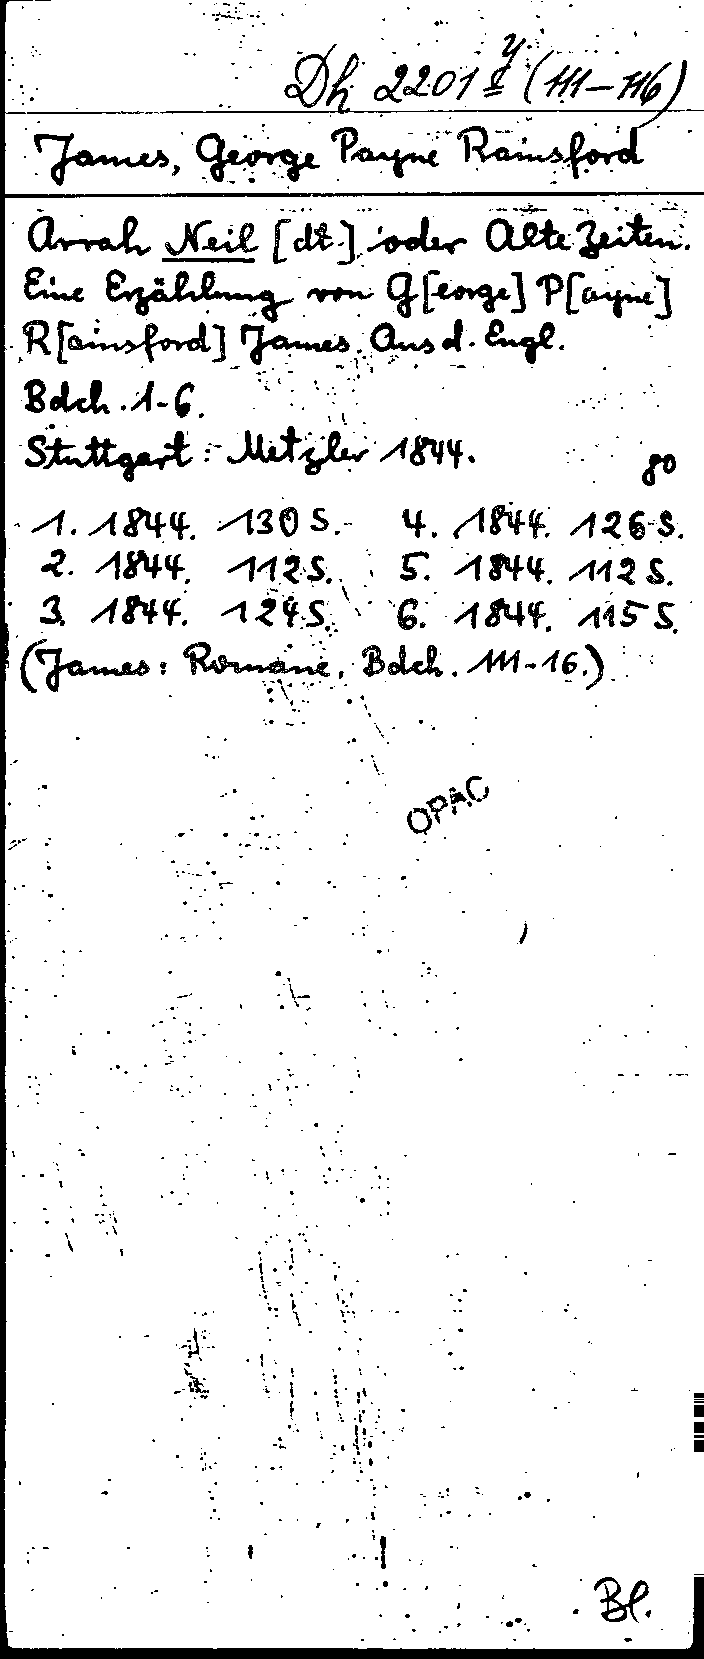 Dh 2201 y (111-116)
James, George Payne Rainsford
Arrah Neil [dt.] oder Alte Zeiten.
Eine Erzählung von G[eorge] P[ayne]
R[ainsford] James. Aus d. Engl.
Bdch. 1-6.
Stuttgart: Metzler 1844. 8o
1. 1844. 130 S. 4. 1844. 126 S.
2. 1844. 112 S. 5. 1844. 112 S.
3. 1844. 124 S. 6. 1844. 115 S.
(James: Romane. Bdch. 111-16.)
OPAC
Bl.